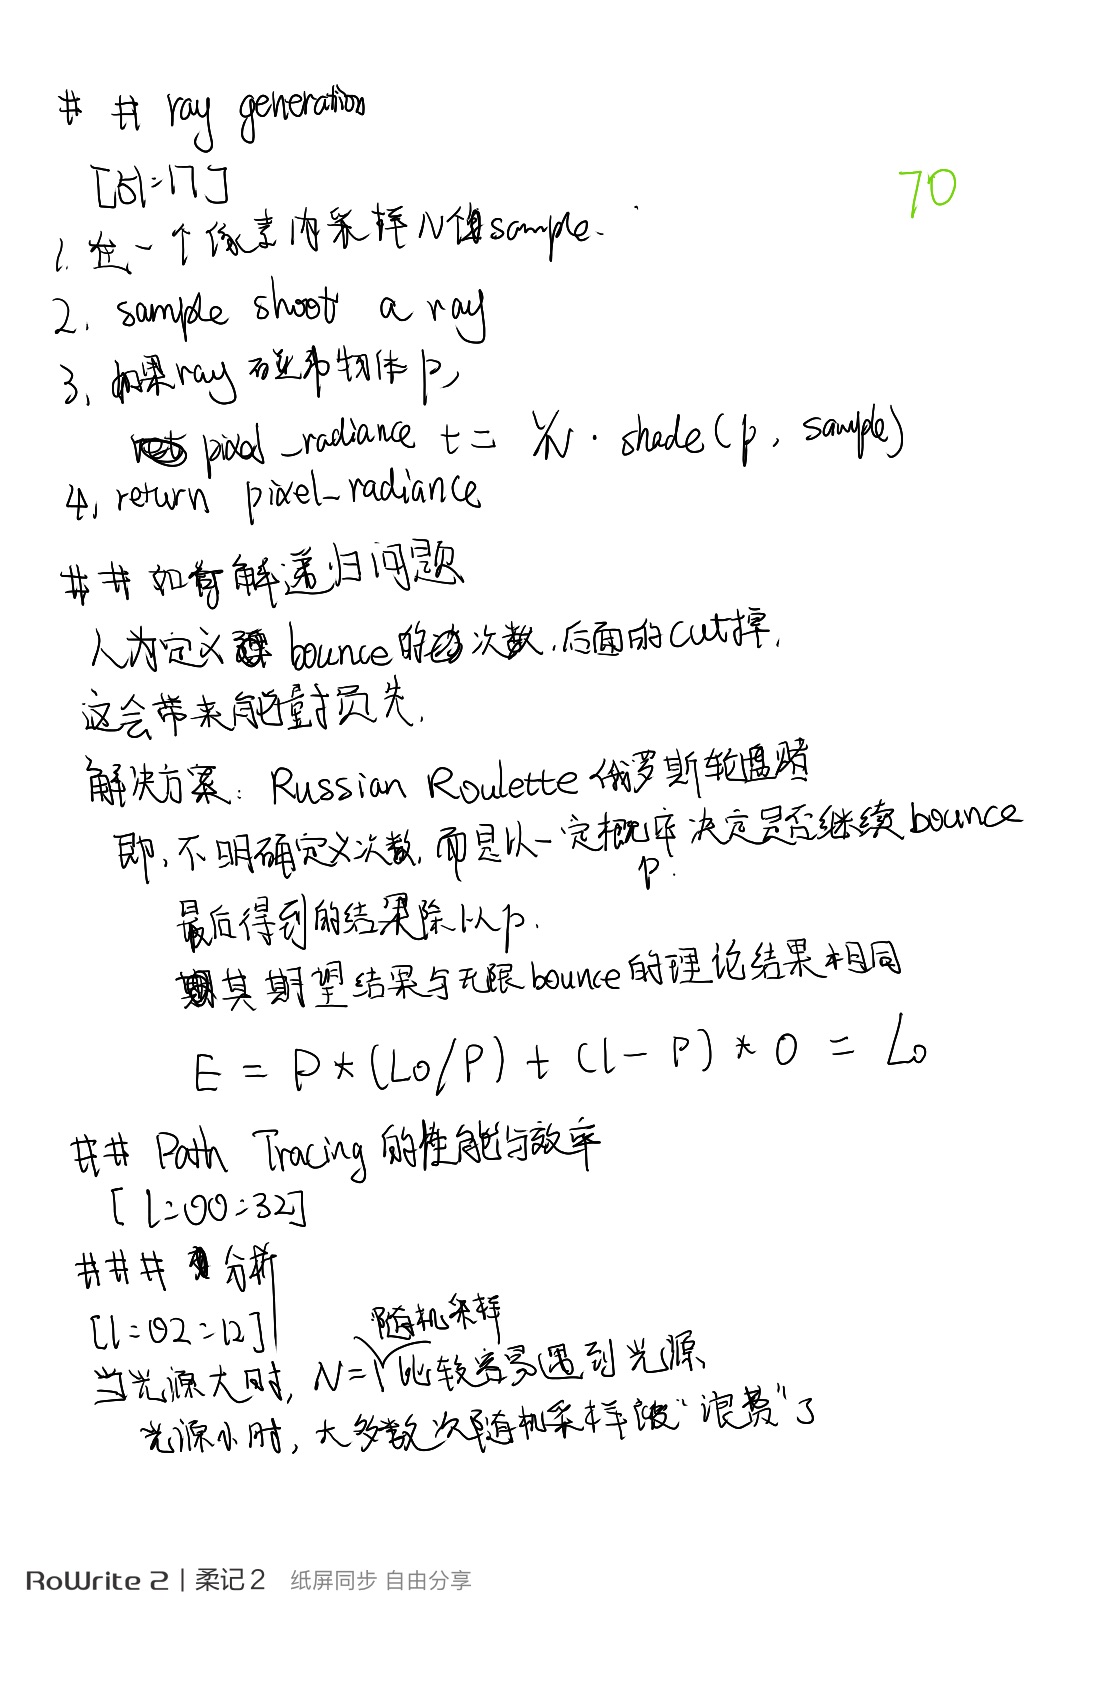 # # ray generation
[51:17]
70
1. 在一个像素内采样N个sample.
2. sample shoot a ray
3. 如果ray 碰到物体p,
pixel_radiance += 1/N · shade(p, sample)
4. return pixel_radiance
## 如何解递归问题
人为定义 bounce的次数,后面的cut掉,
这会带来能量损失.
解决方案: Russian Roulette 俄罗斯轮盘赌
即,不明确定义次数,而是以一定概率决定是否继续bounce
p.
最后得到的结果除以p.
其期望结果与无限bounce的理论结果相同
E = P * (Lo/P) + (1-P) * 0 = Lo
## Path Tracing 的性能与效率
[1:00:32]
### 分析
[1:02:12]
随机采样
当光源大时, N=1 比较容易遇到光源
光源小时,大多数次随机采样被“浪费”了
RoWrite 2 | 柔记 2 纸屏同步 自由分享